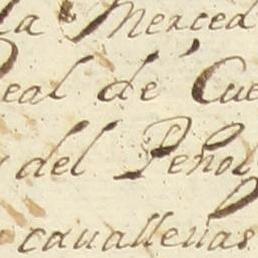 la Merced
eal de Cue
del Peñol
cauallerias